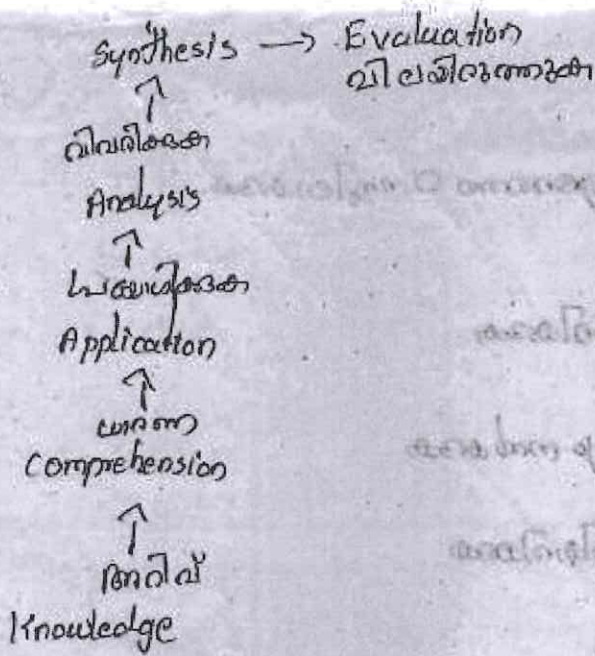 Synthesis → Evaluation
വിലയിരുത്തുക
↑
വിവരിക്കുക
Analysis
↑
പ്രയോഗിക്കുക
Application
↑
ധാരണ
Comprehension
↑
അറിവ്
Knowledge